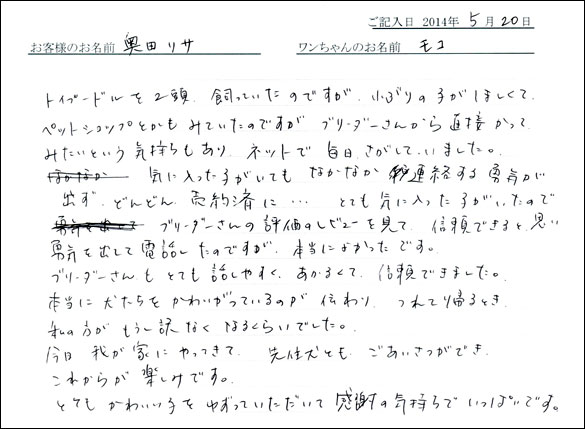 ご記入日 2014年 5月 20日
お客様のお名前 奥田リサ ワンちゃんのお名前 モコ
トイプードルを2頭、飼っていたのですが、小ぶりの子がほしくて、
ペットショップとかもみていたのですが ブリーダーさんから直接かって
みたいという気持ちもあり ネットで毎日さがしていました。
気に入った子がいても なかなか 連絡する勇気が
出ず、どんどん 売約済に… とても気に入った子がいたので
ブリーダーさんの評価のレビューを見て、信頼できると思い
勇気を出して電話したのですが、本当によかったです。
ブリーダーさんもとても話しやすく、あかるくて、信頼できました。
本当に犬たちをかわいがっているのが伝わり、つれて帰るとき
私の方がもうし訳なくなるくらいでした。
今日 我が家にやってきて、先住犬とも、ごあいさつができ、
これからが楽しみです。
とてもかわいい子をゆずっていただいて感謝の気持ちでいっぱいです。